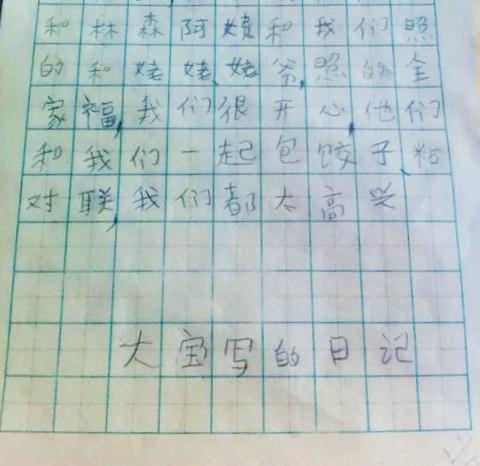 和林森阿姨和我们照
的和姥姥、姥爷,照的全
家福,我们很开心,他们
和我们一起包饺子、粘
对联,我们都太高兴
大宝写的日记